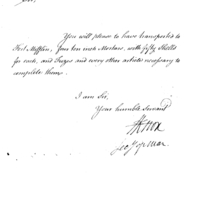 Sir,
You will please to have transported to
Fort Mifflin, four ten inch Mortars, with fifty Shells
for each, and Fuzes and every other article necessary to
complete them.
I am Sir,
Your humble Servant
HKnox